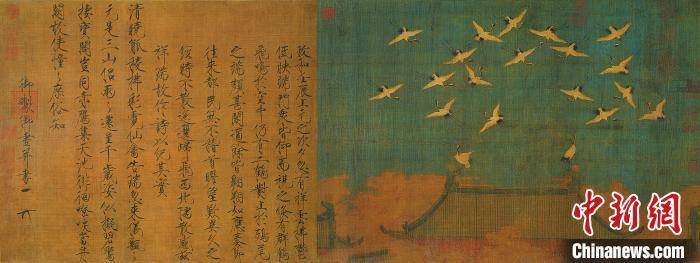 政和壬辰上元之次夕忽有祥雲拂鬱
低映端門眾皆仰而視之倏有群鶴
飛鳴於空中仍有二鶴對止於鴟尾
之端頗甚閒適餘皆翱翔如應奏節
往來都民無不稽首瞻望歎異久之
經時不散迤邐歸飛西北隅散感茲
祥瑞故作詩以紀其實
清曉觚稜拂彩霓仙禽告瑞忽來儀飄々
元是三山侶兩々還呈千歲姿似擬碧鸞
棲寶閣豈同赤雁集天池徘徊嘹唳當丹
闕故使憧々庶俗知
御製御畫並書
中新网
Chinanews.com